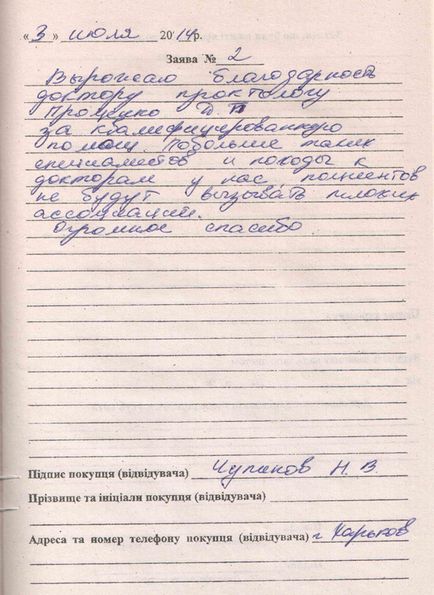 «3» июля 2014р.
Заява № 2
Выражаю благодарность
доктору проктологу
Проценко Д. П
за квалифицированную
помощь. Побольше таких
специалистов и походы к
докторам у нас пациентов
не будут вызывать плохих
ассоциаций.
Огромное спасибо
Підпис покупця (відвідувача) Н. В.
Прізвище та ініціали покупця (відвідувача)
Адреса та номер телефону покупця (відвідувача) г Харьков